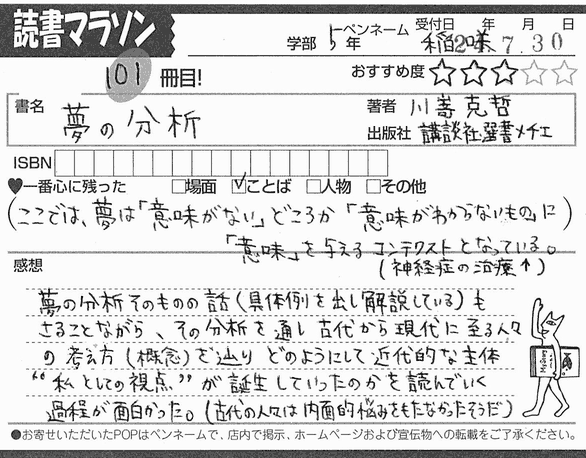 読書マラソン
学部 5年 ペンネーム 受付日 年 月 日
稲味 24.7.30
101冊目!
おすすめ度 ★★★☆☆
書名 夢の分析
著者 川嵜克哲
出版社 講談社選書メチエ
ISBN
♥一番心に残った □場面 ☑ことば □人物 □その他
(ここでは、夢は「意味がない」どころか「意味がわからないもの」に
「意味」を与えるコンテクストとなっている。)
(神経症の治療↑)
感想
夢の分析そのものの話(具体例を出し解説している)も
さることながら、その分析を通し古代から現代に至る人々
の考え方(概念)を辿り どのようにして近代的な主体
“私としての視点”が誕生していったのかを読んでいく
過程が面白かった。(古代の人々は内面的悩みをもたなかったそうだ)
●お寄せいただいたPOPはペンネームで、店内で掲示、ホームページおよび宣伝物への転載をご了承ください。